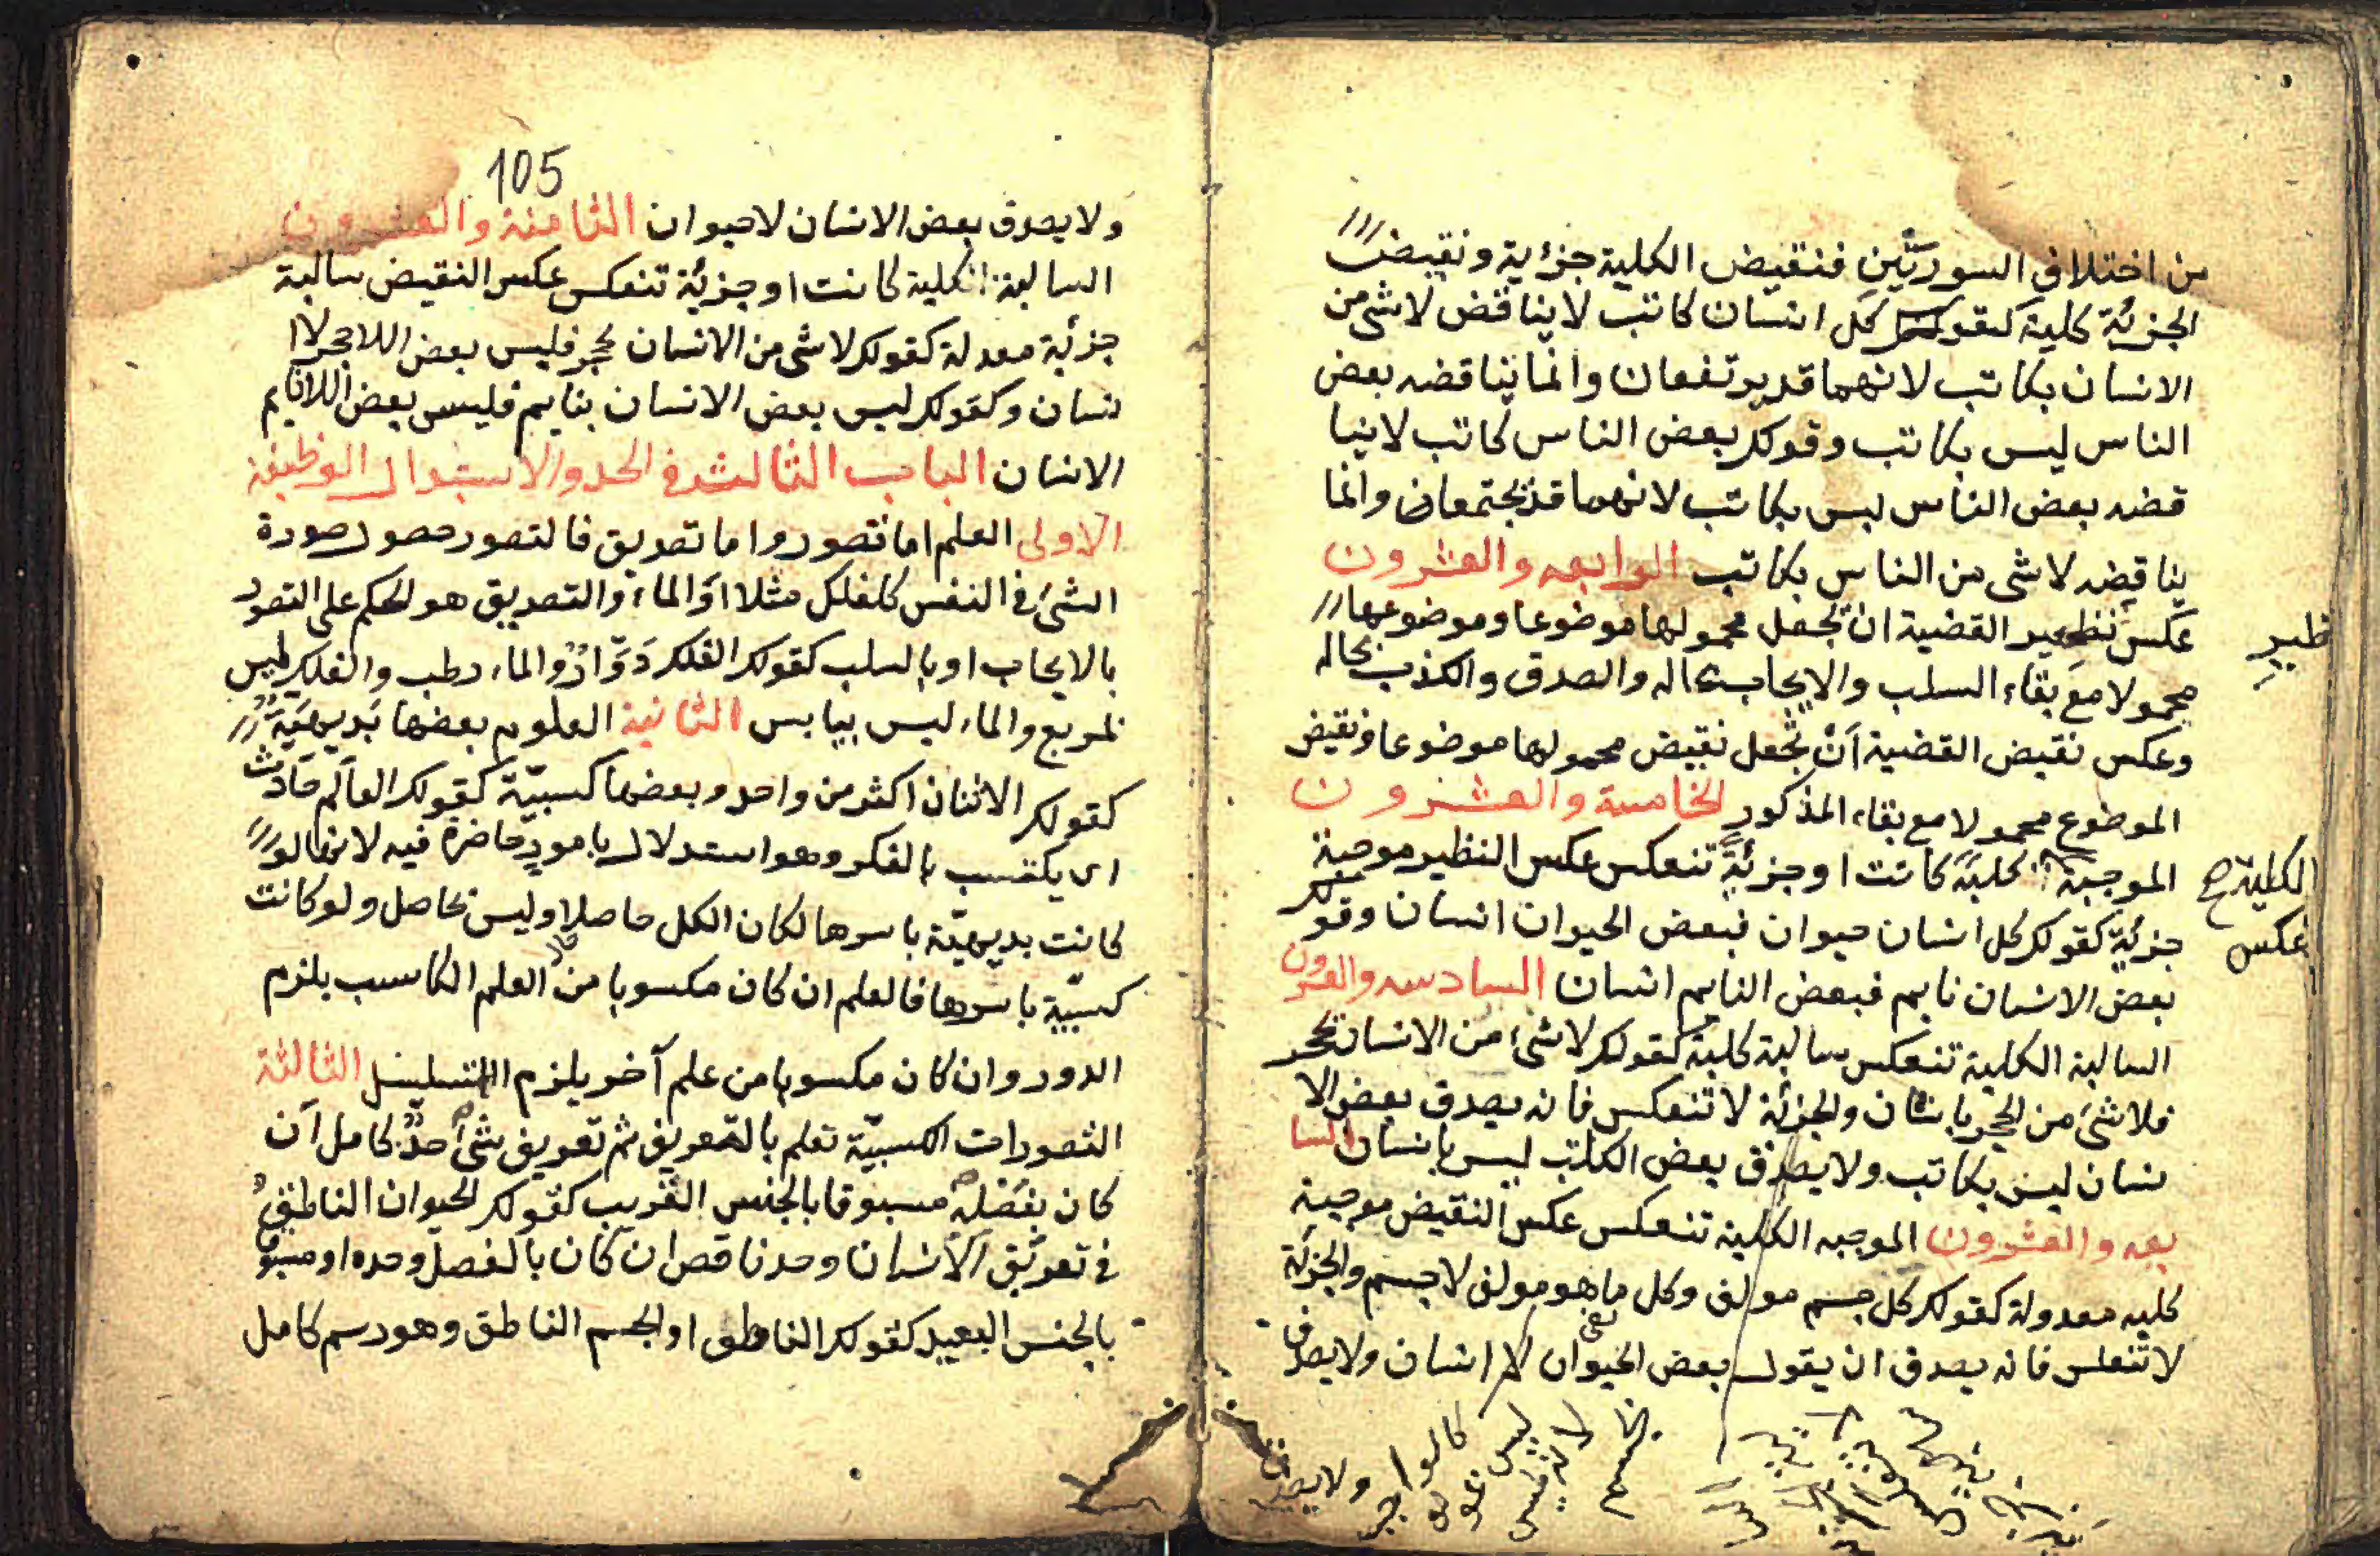 من اختلاف السوريّين فنقيض الكلية جزؤية ونقيض
الجزئة كلية كقولك كل انسان كاتب لا يناقض لا شئ من
الانسان بكاتب لانهما قد يرتفعان وانما يناقضه بعض
الناس ليس بكاتب وقولك بعض الناس كاتب لا ينا
قضه بعض الناس ليس بكاتب لانهما قد يجتمعان وانما
يناقضه لا شى من الناس بكاتب الرابعه والعشرون
عكس نظير القضية ان تجعل محمولها موضوعا وموضوعها
ظير
محمولا مع بقاء السلب والايجاب بحاله والصدق والكذب بحاله
وعكس نقيض القضية أن تجعل نقيض محمولها موضوعا ونقيض
الموضوع محمولا مع بقاء المذكور الخامسة والعشرون
الموجبة كلية كانت او جزئية تنعكس عكس النظير موجبة
الكلية
جزئية كقولك كل انسان حيوان فبعض الحيوان انسان وقولك
عكس
بعض الانسان نايم فبعض النايم انسان السادسه والعشرون
السالبة الكلية تنعكس سالبة كلية كقولك لا شئ من الانسان بحجر
فلا شئ من الحجر بانسان والجزئة لا تنعكس فانه يصدق بعض الا
نسان ليس بكاتب ولا يصدق بعض الكاتب ليس بانسان السا
بعه والعشرون الموجبه الكلية تنعكس عكس النقيض موجبة
كليه معدولة كقولك كل جسم مولف وكل ما هو مولف لا جسم والجزئة
لا تنعكس فانه يصدق ان يقول بعض الحيوان لا انسان ولا يصدق
ولا يصدق
105
ولا يصدق بعض الانسان لا حيوان الثامنة والعشرون
السالبة كلية كانت او جزئة تنعكس عكس النقيض سالبة
جزئية معدلة كقولك لا شى من الانسان بحجر فليس بعض اللاحجر لاا
نسان وكقولك ليس بعض الانسان بنايم فليس بعض اللانايم
الانسان الباب الثالث فى الحد والاستدلال الوظيفة
الاولى العلم اما تصور واما تصديق فالتصور حصول صورة
الشئ فى النفس كالفلك مثلا او الماء والتصديق هو الحكم على التصور
بالايجاب او بالسلب كقولك الفلك دوّار والماء رطب والفلك ليس
بمربع والماء ليس بيابس الثانية العلوم بعضها بديهيّة
كقولك الاثنان اكثر من واحد وبعضها كسبيّة كقولك العالم حادث
اى يكتسب بالفكر وهو استدلال بامور حاضرة فيه لانها لو
كانت بديهيّة باسرها لكان الكل حاصلا وليس بحاصل ولو كانت
كسبيّة باسرها فالعلم ان كان مكسوبا من العلم الكاسب يلزم
الدور وان كان مكسوبا من علم آخر يلزم التسلسل الثالثة
التصورات الكسبيّة تعلم بالتعريف ثم تعريف شئ حدّ كامل ان
كان بفصله مسبوقا بالجنس القريب كقولك الحيوان الناطق
فى تعريف الانسان وحد ناقص ان كان بالفصل وحده او مسبو
بالجنس البعيد كقولك الناطق او الجسم الناطق وهو رسم كامل